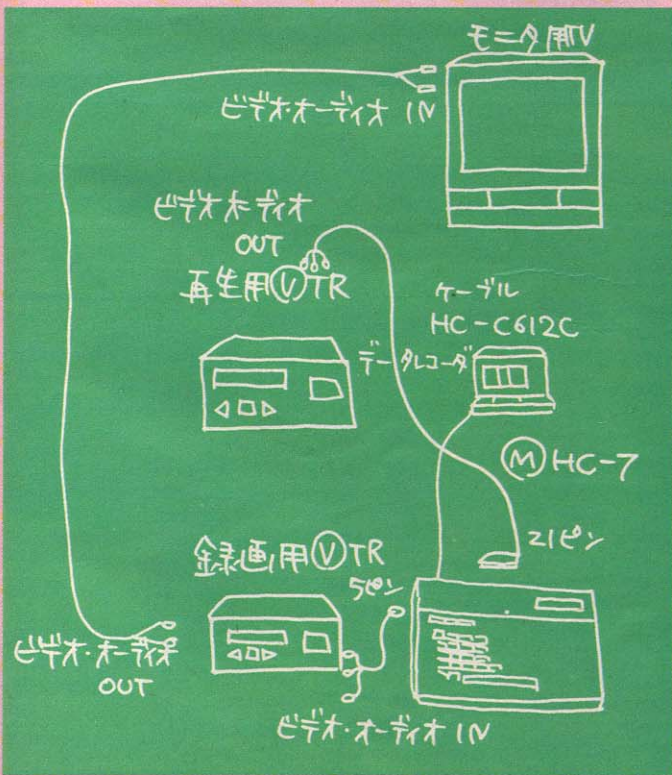 モニタ用TV
ビデオ・オーディオ IN
ビデオオーディオ
OUT
再生用ⓋTR
ケーブル
HC-C612C
データレコーダ
ⓂHC-7
21ピン
録画用ⓋTR
5ピン
ビデオ・オーディオ
OUT
ビデオ・オーディオ IN